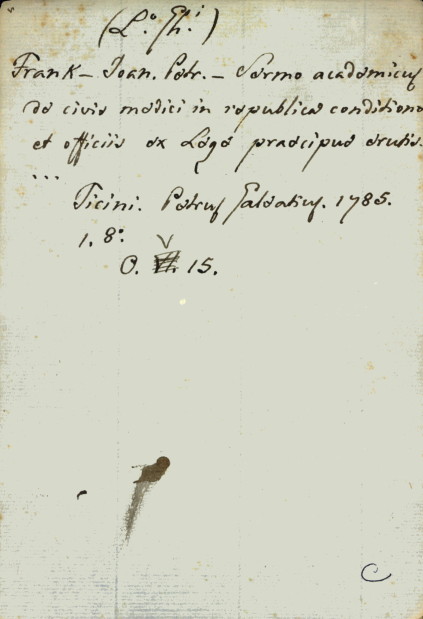 (L.º Th.i)
Frank – Joan. Petr. – Sermo academicus
de civis medici in republica conditione
et officiis ex Lege praecipue erutis.
...
Ticini. Petrus Galeatius. 1785.
1. 8º.
V
O. 15.
C